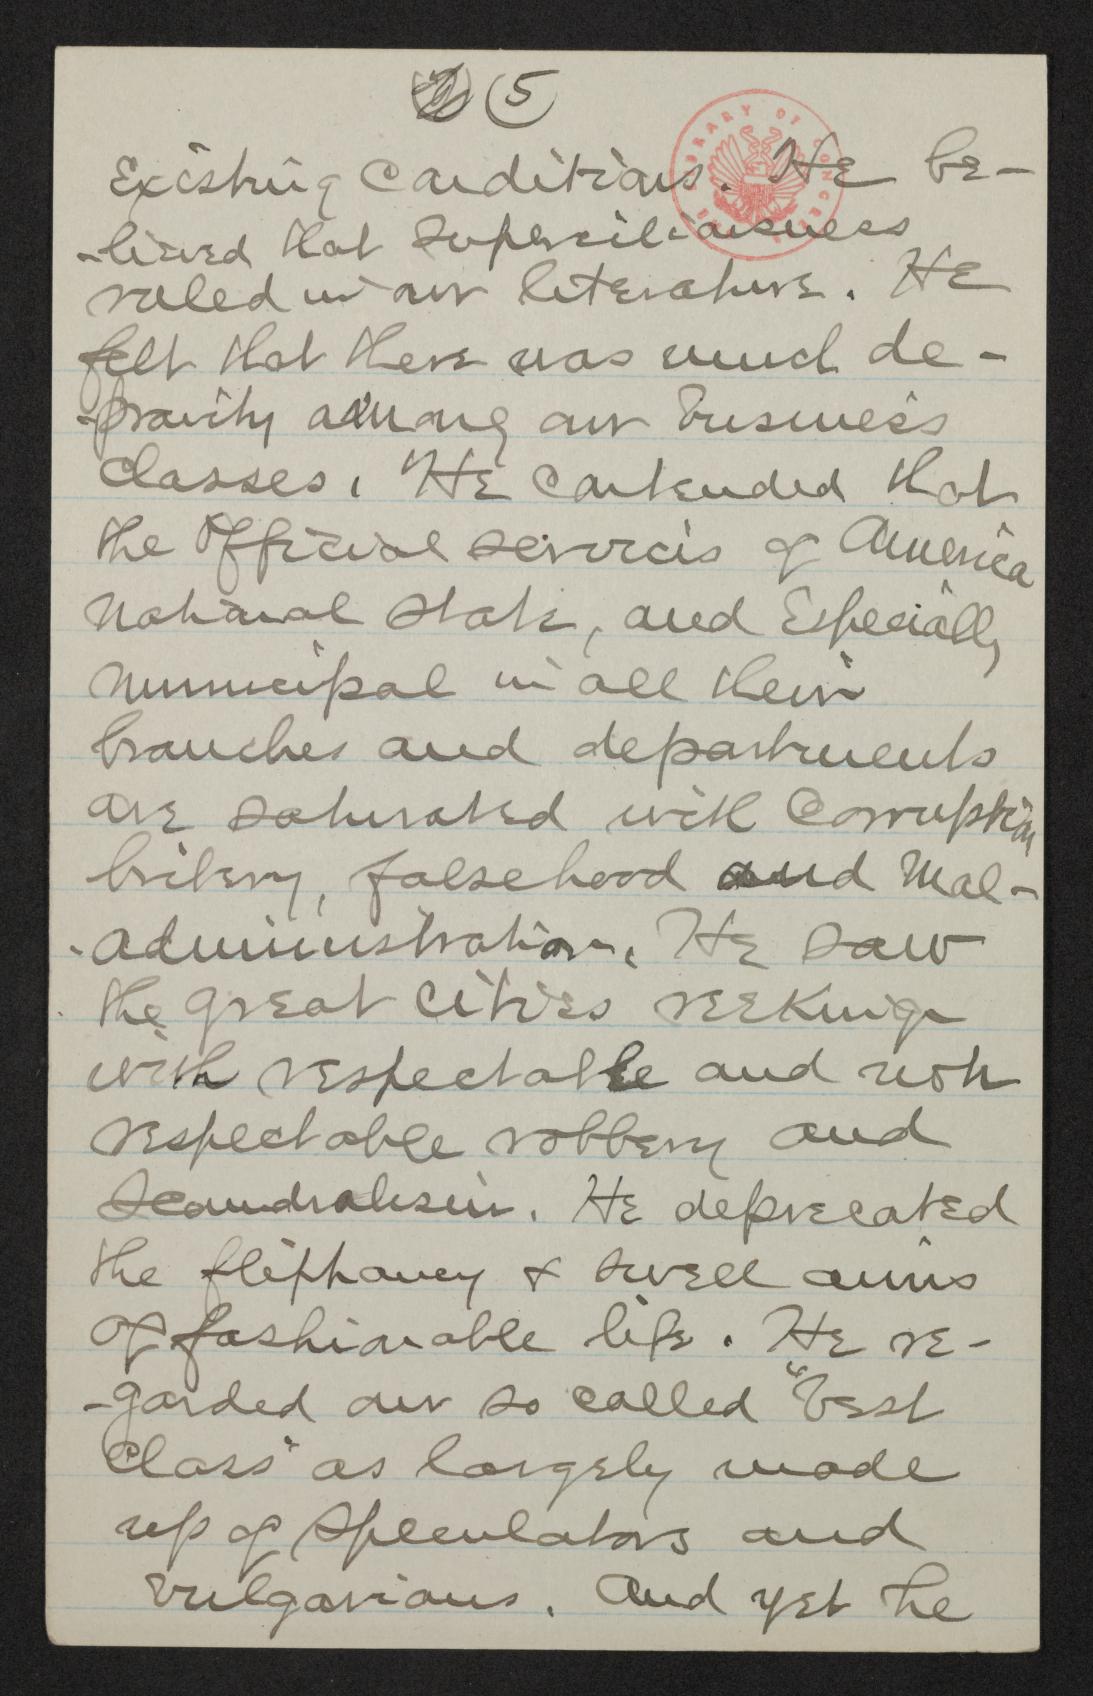 5
Existing Conditions. He be-
-lieved that superciliousness
ruled in our literature. He
felt that there was much de-
-pravity among our business
classes. He contended that
the official services of America
National State, and Especially
municipal in all their
branches and departments
are saturated with Corruption
bribery, falsehood and Mal-
-administration. He saw
the great cities reeking
with respectable and non
respectable robbery and
Scoundralism. He deprecated
the fliphancy & swell aims
of fashionable life. He re-
-garded our so called "best
Class" as largely made
up of speculators and
vulgarians. And yet he
LIBRARY OF CONGRESS